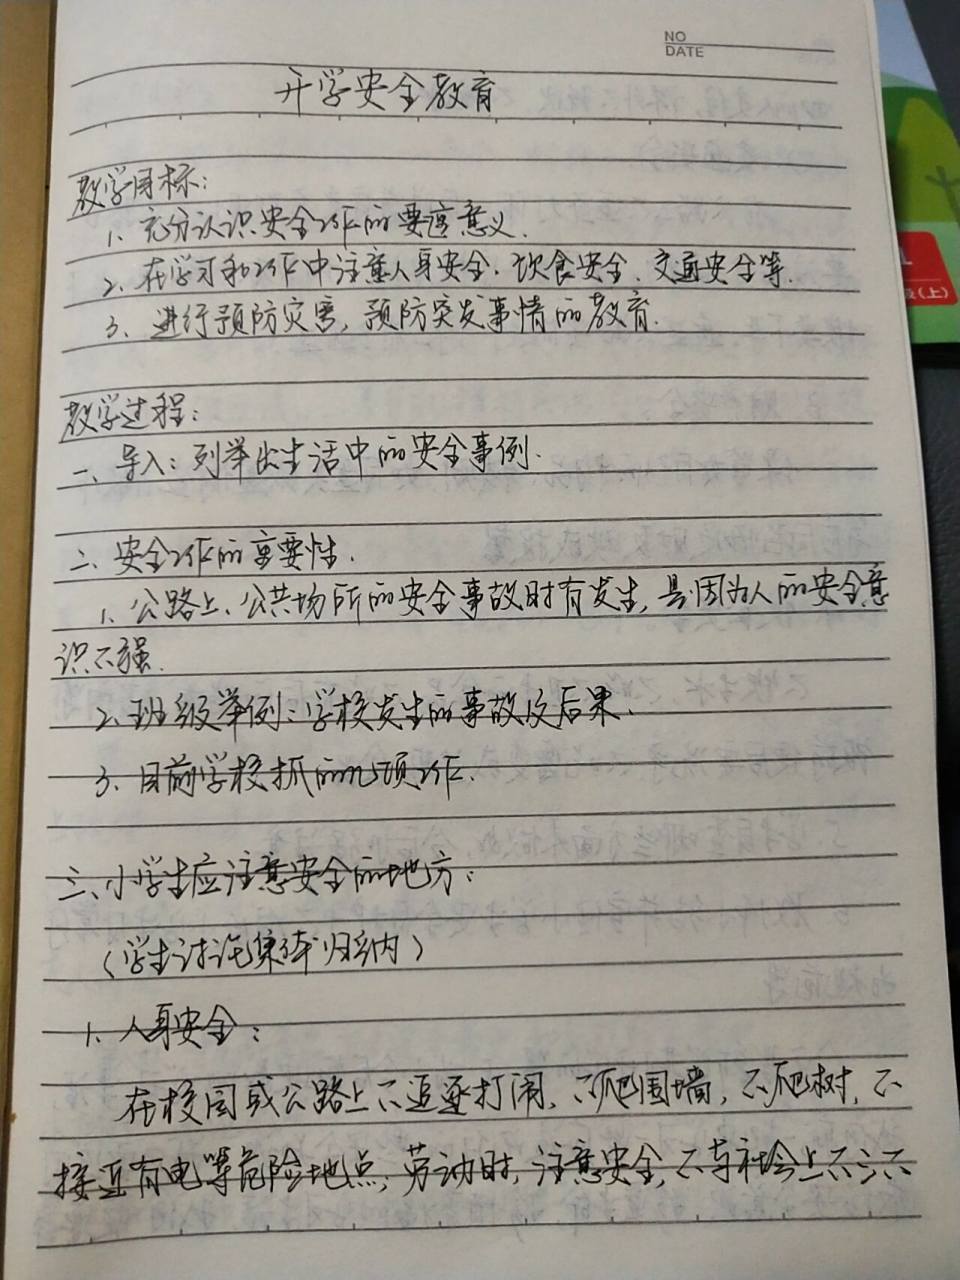 NO
DATE
开学安全教育
教学目标：
1、充分认识安全工作的要这意义.
2、在学习和工作中注意人身安全、饮食安全、交通安全等.
3、进行预防灾害，预防突发事情的教育.
教学过程：
一、导入：列举出生活中的安全事例.
二、安全工作的重要性.
1、公路上、公共场所的安全事故时有发生，是因为人的安全意
识不强.
2、班级举例：学校发生的事故及后果.
3、目前学校抓的几项工作.
三、小学生应注意安全的地方：
（学生讨论集体归纳）
1、人身安全：
在校园或公路上不追逐打闹，不爬围墙，不爬树，不
接近有电等危险地点，劳动时，注意安全，不与社会上不三不
1
级（上）